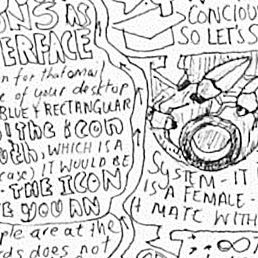 NS AS
ERFACE
n for that oma
e of your desktop
BLUE & RECTANGULAR
THE ICON
WHICH IS A
case) IT WOULD BE
- THE ICON
E YOU AN
ple are at the
rds does not
CONCIOU
SO LET'S
SYSTEM - IT
IS A FEMALE -
T MATE WITH
∞